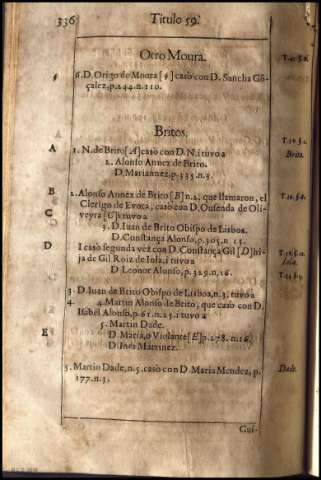 336 Titulo 59.
Otro Moura.
6. D. Origo de Moura [ ] casò con D. Sancha Gõ-
çalez, p. 244. n. 110.
Britos.
A
1. N. de Brito [A] casò con D. N. i tuvo a
2. Alonso Annez de Brito.
D. Mariannez, p. 335. n. 3.
Brito.
B
2. Alonso Annez de Brito [B] n. 2, que llamaron, el
Clerigo de Evora, casò con D. Ousenda de Oli-
C
veyra [C] i tuvo a
3. D. Iuan de Brito Obispo de Lisboa.
D. Constança Alonso, p. 305. n 15.
D
I casò segunda vez con D. Constança Gil [D] hi-
ja de Gil Roiz de Iola, i tuvo a
Iola.
D Leonor Alonso, p. 329. n. 16.
3. D. Iuan de Brito Obispo de Lisboa, n. 3. tuvo a
4. 4. Martin Alonso de Brito, que casò con D.
Isabel Alonso, p. 61. n. 25. i tuvo a
5. Martin Dade.
E
D Maria, o Violante [E] p. 278. n. 16.
D. Ines Martinez.
5. Martin Dade, n. 5. casò con D Maria Mendez, p.
177. n. 5.
Dade.
Gui-